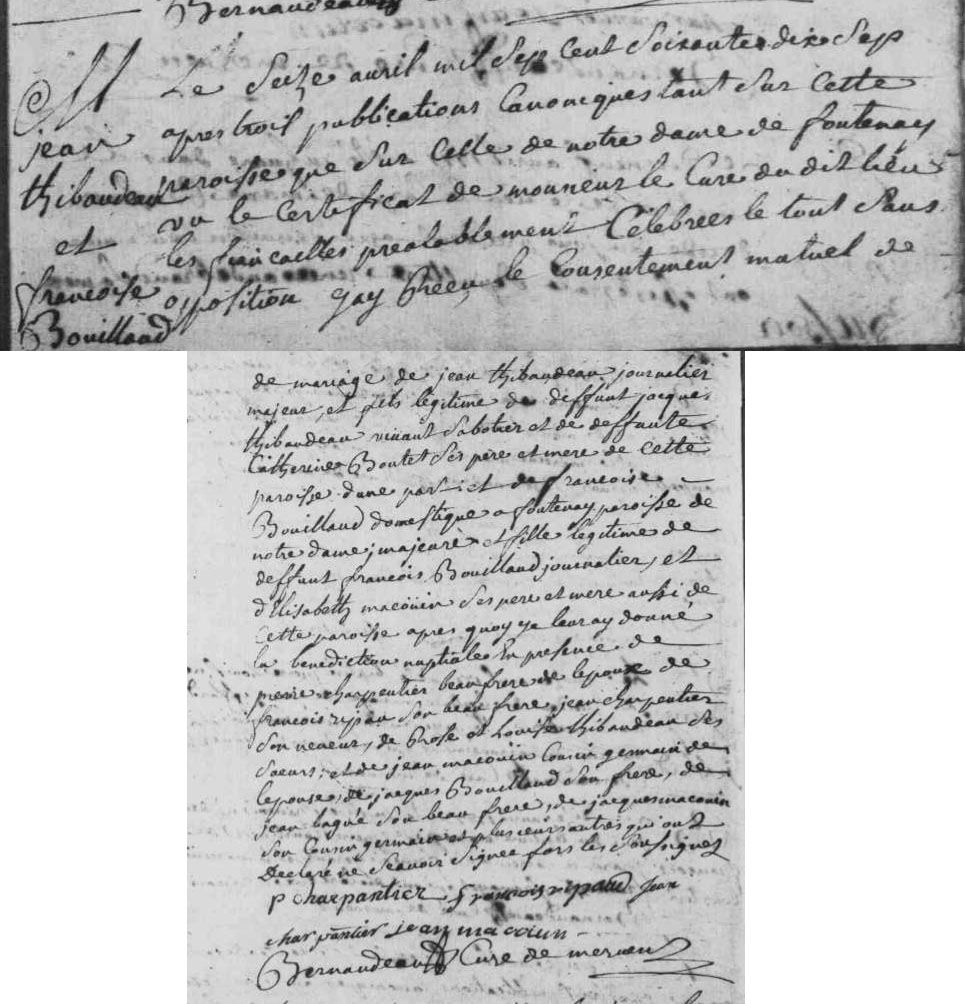 Bernaudeau
M
jean
thibaudeau
et
francoise
Bouillaud
Le Seize avril mil Sept Cent Soixante dix Sep
apres trois publications Canonicques tant Sur Cette
paroisse que Sur Celle de notre dame de fontenay
vu le Certificat de monsieur le Cure du dit lieu
les fiancailles prealablement Célébrees le tout Sans
opposition gay Receu le Consentement mutuel de
de mariage de jean thibaudeau journalier
majeur, et fils légitime de deffunt jacques
thibaudeau vivant Sabotier et de deffunte
Catherine Boutet Ses pere et mere de Cette
paroisse d'une part et de francoise
Bouillaud domestique a fontenay paroisse de
notre dame, majeure et fille légitime de
deffunt francois Bouillaud journalier, et
d'Elisabeth macouin Ses pere et mere aussi de
Cette paroisse apres quoy je leur ay donné
la benediction nuptiale En presence de
pierre charpentier beau frere de lepoux de
francois ripau Son beau frere, jean charpentier
Son neveux, de Rose et Louise thibaudeau Ses
Soeurs, et de jean macouin Cousin germain de
lepouse, de jacques Bouillaud Son frere, de
jean bagué Son beau frere, de jacques macouin
Son Cousin germain et plusieurs autres qui ont
Declaré ne Scavoir Signee fors les Soussignes
P charpantier francois ripaud Jean
charpantier jean macouin
Bernaudeau Cure de mervent